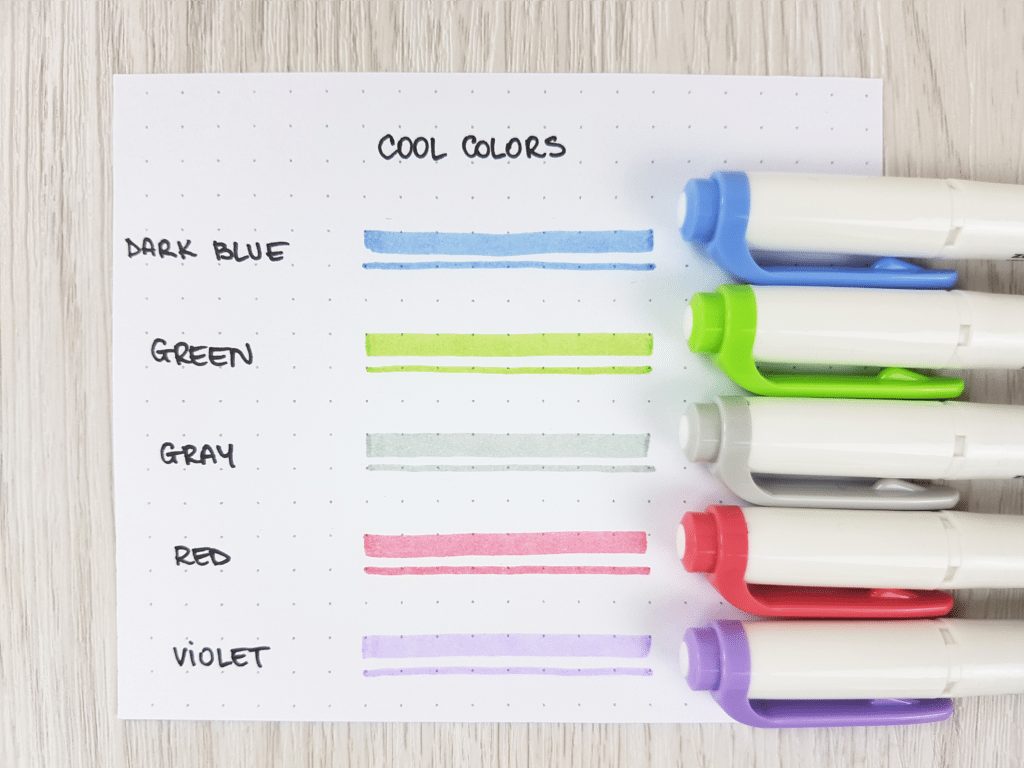 COOL COLORS
DARK BLUE
GREEN
GRAY
RED
VIOLET